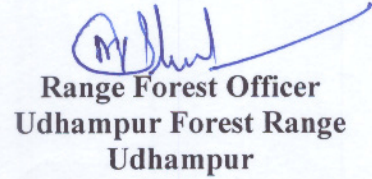 Range Forest Officer
Udhampur Forest Range
Udhampur